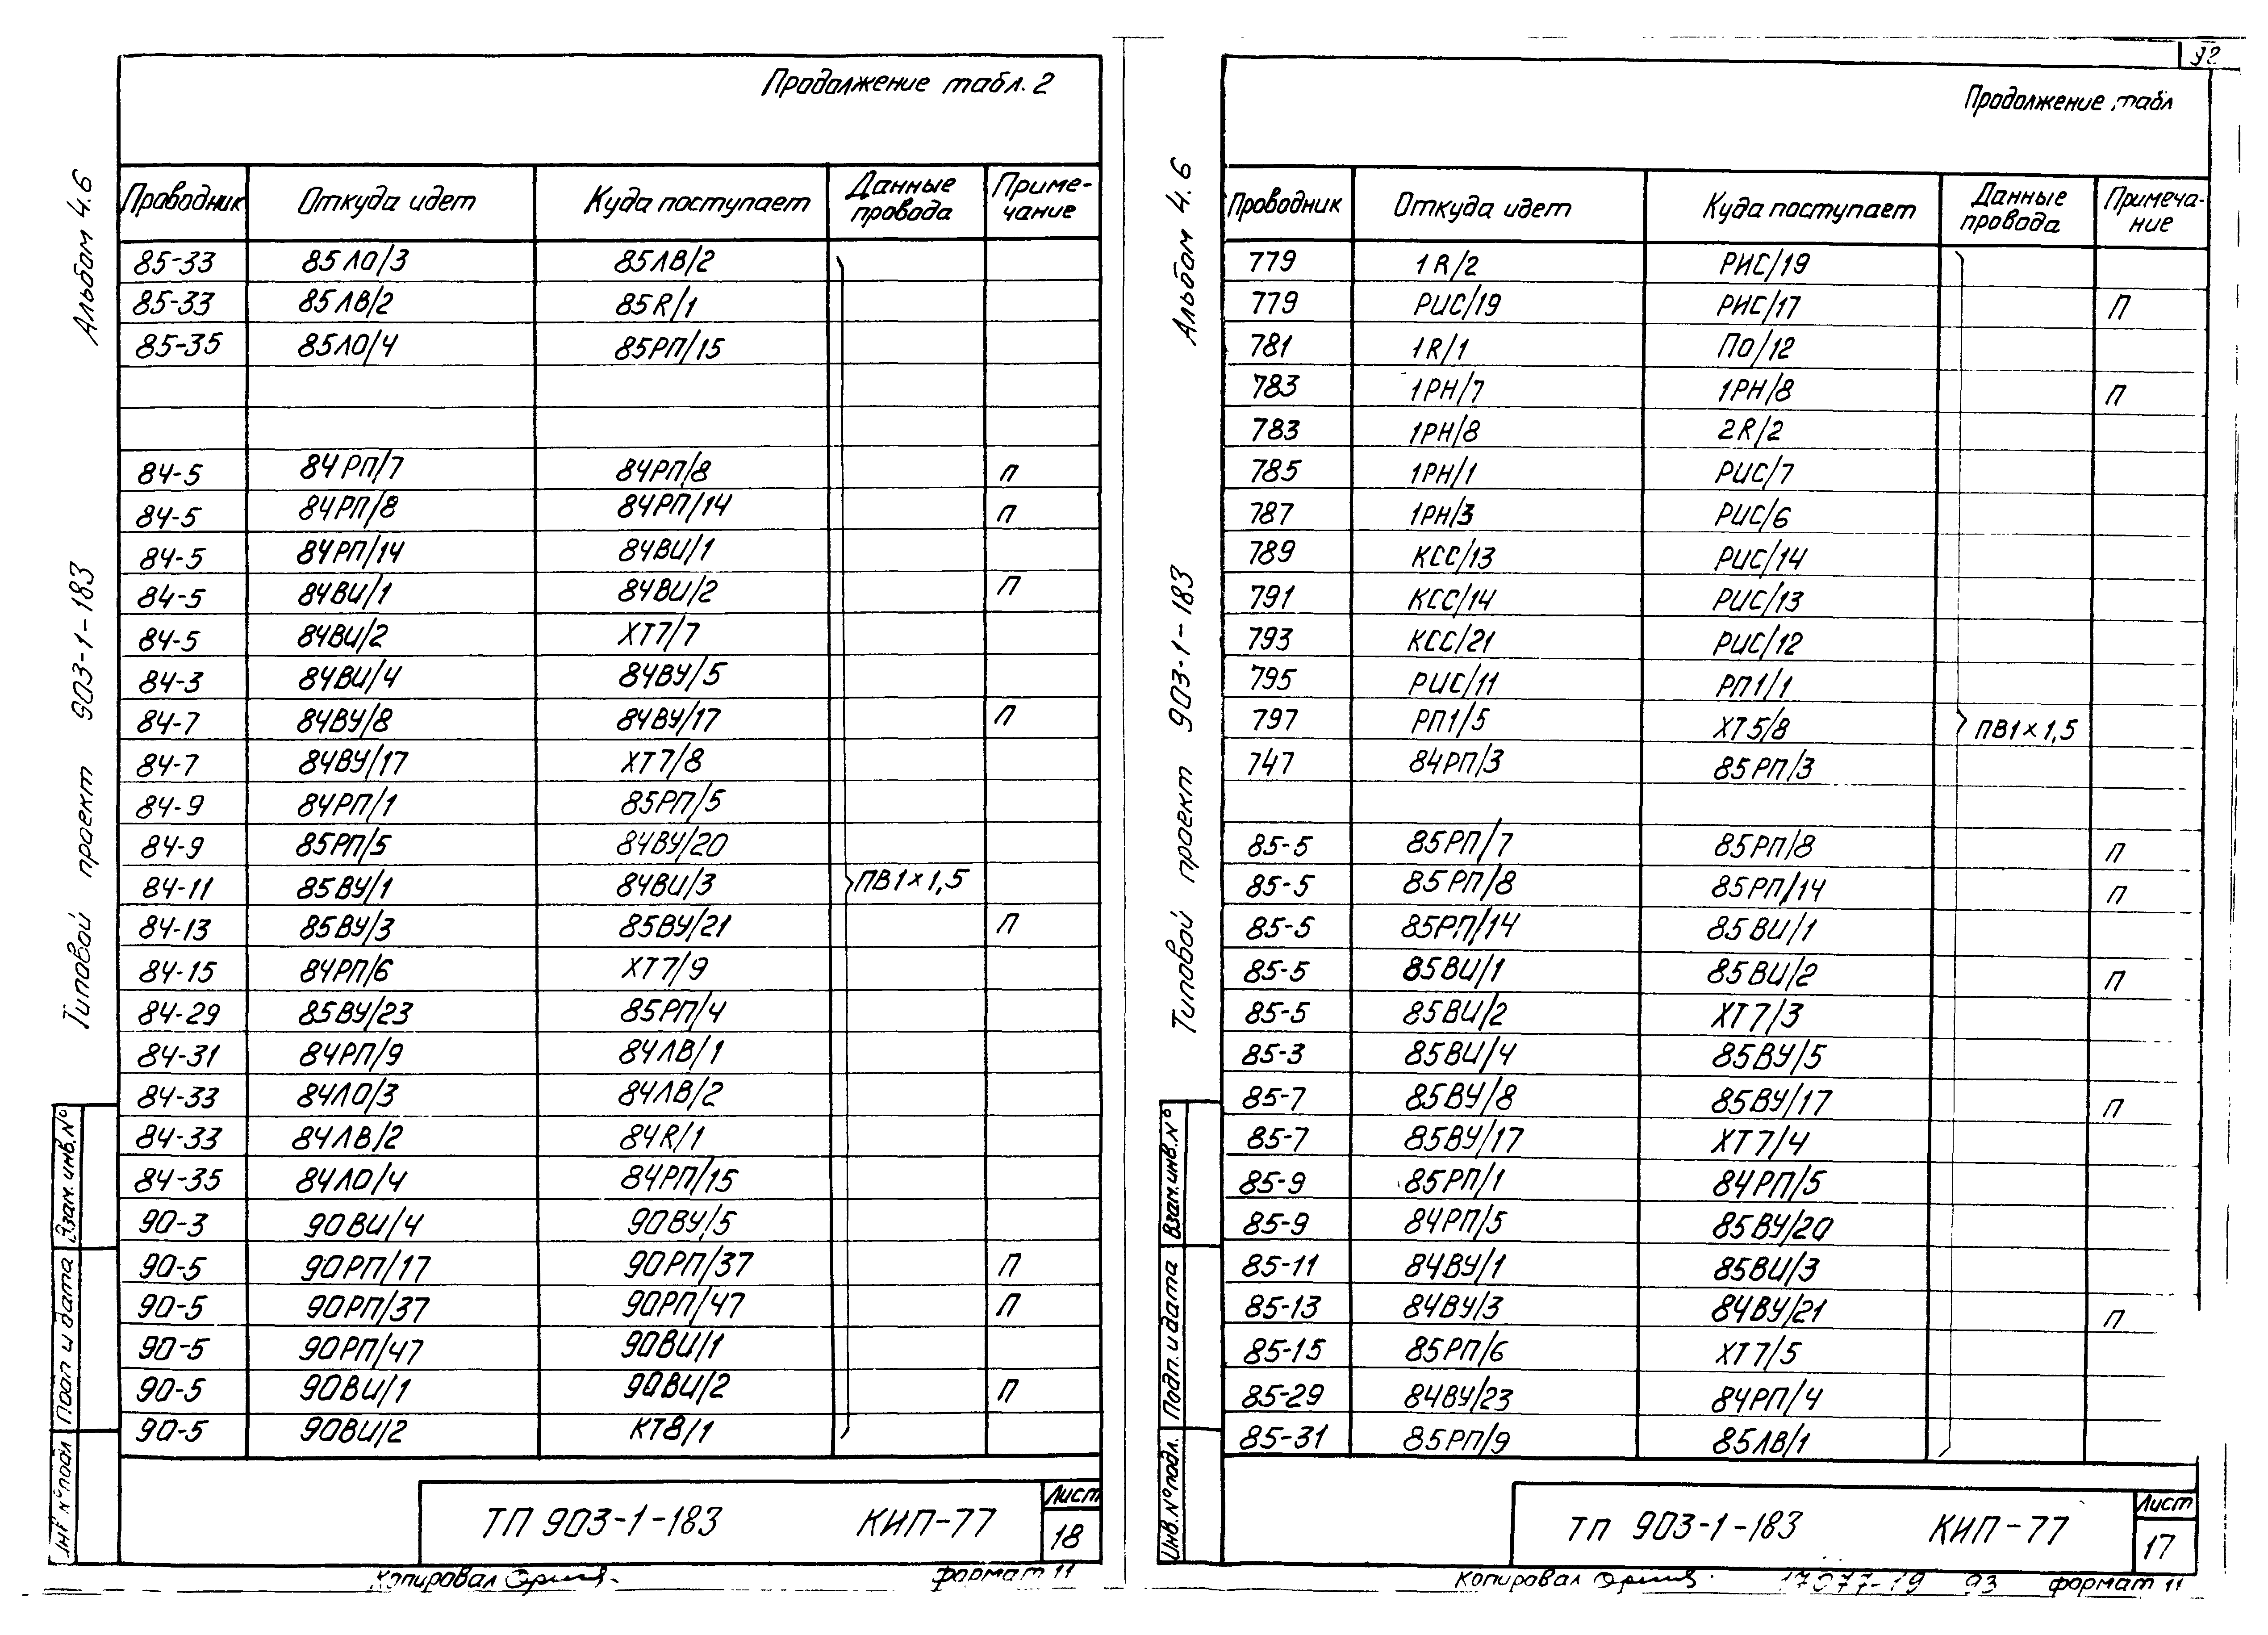 Продолжение табл. 2
Альбом 4.6
Типовой проект 903-1-183
Проводник Откуда идет Куда поступает Данные провода Приме-чание
85-33 85ЛО/3 85ЛВ/2
85-33 85ЛВ/2 85R/1
85-35 85ЛО/4 85РП/15
84-5 84РП/7 84РП/8 П
84-5 84РП/8 84РП/14 П
84-5 84РП/14 84ВИ/1
84-5 84ВИ/1 84ВИ/2 П
84-5 84ВИ/2 ХТ7/7
84-3 84ВИ/4 84ВУ/5
84-7 84ВУ/8 84ВУ/17 П
84-7 84ВУ/17 ХТ7/8
84-9 84РП/1 85РП/5
84-9 85РП/5 84ВУ/20
84-11 85ВУ/1 84ВИ/3 ПВ1×1,5
84-13 85ВУ/3 85ВУ/21 П
84-15 84РП/6 ХТ7/9
84-29 85ВУ/23 85РП/4
84-31 84РП/9 84ЛВ/1
84-33 84ЛО/3 84ЛВ/2
84-33 84ЛВ/2 84R/1
84-35 84ЛО/4 84РП/15
90-3 90ВИ/4 90ВУ/5
90-5 90РП/17 90РП/37 П
90-5 90РП/37 90РП/47 П
90-5 90РП/47 90ВИ/1
90-5 90ВИ/1 90ВИ/2 П
90-5 90ВИ/2 КТ8/1
Взам.инв.N°
Подп и дата
Инв N°подл
ТП 903-1-183 КИП-77
Лист
18
Копировал
формат 11
92
Продолжение табл
Альбом 4.6
Типовой проект 903-1-183
Проводник Откуда идет Куда поступает Данные провода Примеча-ние
779 1R/2 РИС/19
779 РИС/19 РИС/17 П
781 1R/1 ПО/12
783 1РН/7 1РН/8 П
783 1РН/8 2R/2
785 1РН/1 РИС/7
787 1РН/3 РИС/6
789 КСС/13 РИС/14
791 КСС/14 РИС/13
793 КСС/21 РИС/12
795 РИС/11 РП1/1
797 РП1/5 ХТ5/8 ПВ1×1,5
747 84РП/3 85РП/3
85-5 85РП/7 85РП/8 П
85-5 85РП/8 85РП/14 П
85-5 85РП/14 85ВИ/1
85-5 85ВИ/1 85ВИ/2 П
85-5 85ВИ/2 ХТ7/3
85-3 85ВИ/4 85ВУ/5
85-7 85ВУ/8 85ВУ/17 П
85-7 85ВУ/17 ХТ7/4
85-9 85РП/1 84РП/5
85-9 84РП/5 85ВУ/20
85-11 84ВУ/1 85ВИ/3
85-13 84ВУ/3 84ВУ/21 П
85-15 85РП/6 ХТ7/5
85-29 84ВУ/23 84РП/4
85-31 85РП/9 85ЛВ/1
Взам.инв.N°
Подп. и дата
Инв.N°подл.
ТП 903-1-183 КИП-77
Лист
17
Копировал
17077-19 93 формат 11